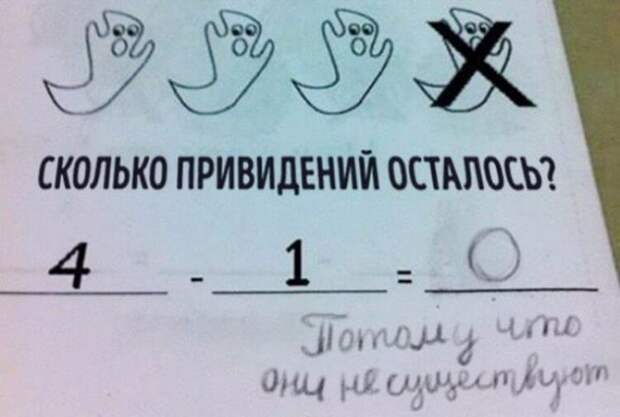 СКОЛЬКО ПРИВИДЕНИЙ ОСТАЛОСЬ?
4 - 1 = 0
Потому что
они не существуют